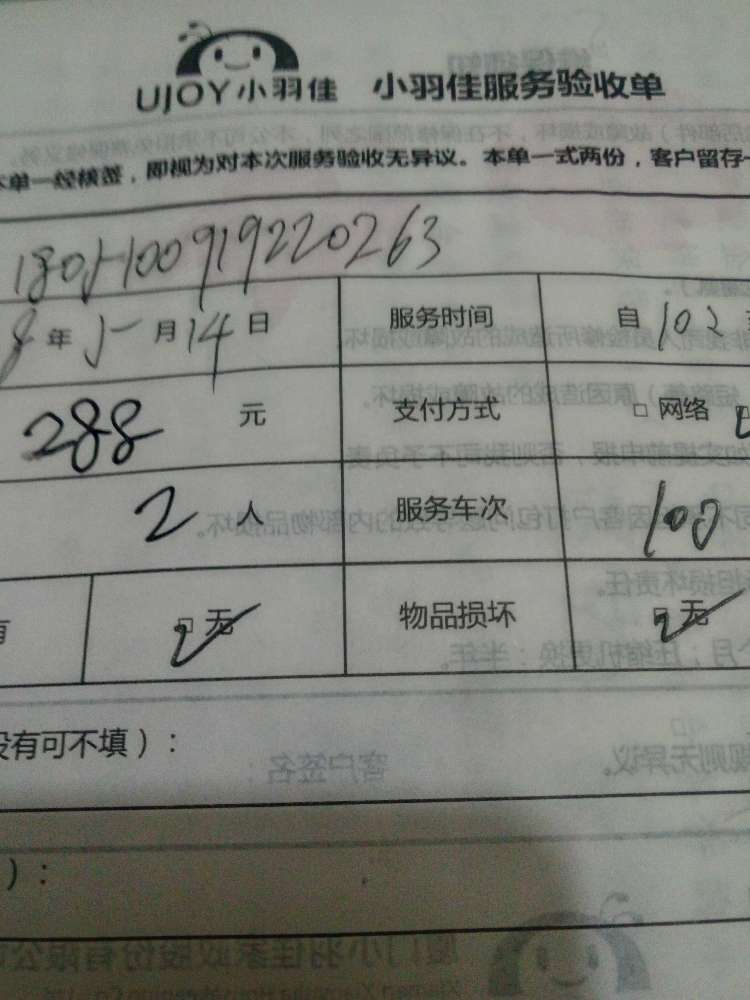 UJOY小羽佳 小羽佳服务验收单
本单一经核签，即视为对本次服务验收无异议。本单一式两份，客户留存一
1805100919220263
8年5月14日 服务时间 自
288元 支付方式 □网络
2人 服务车次
有 □无 物品损坏 □无
没有可不填）：
）：
客户签名：